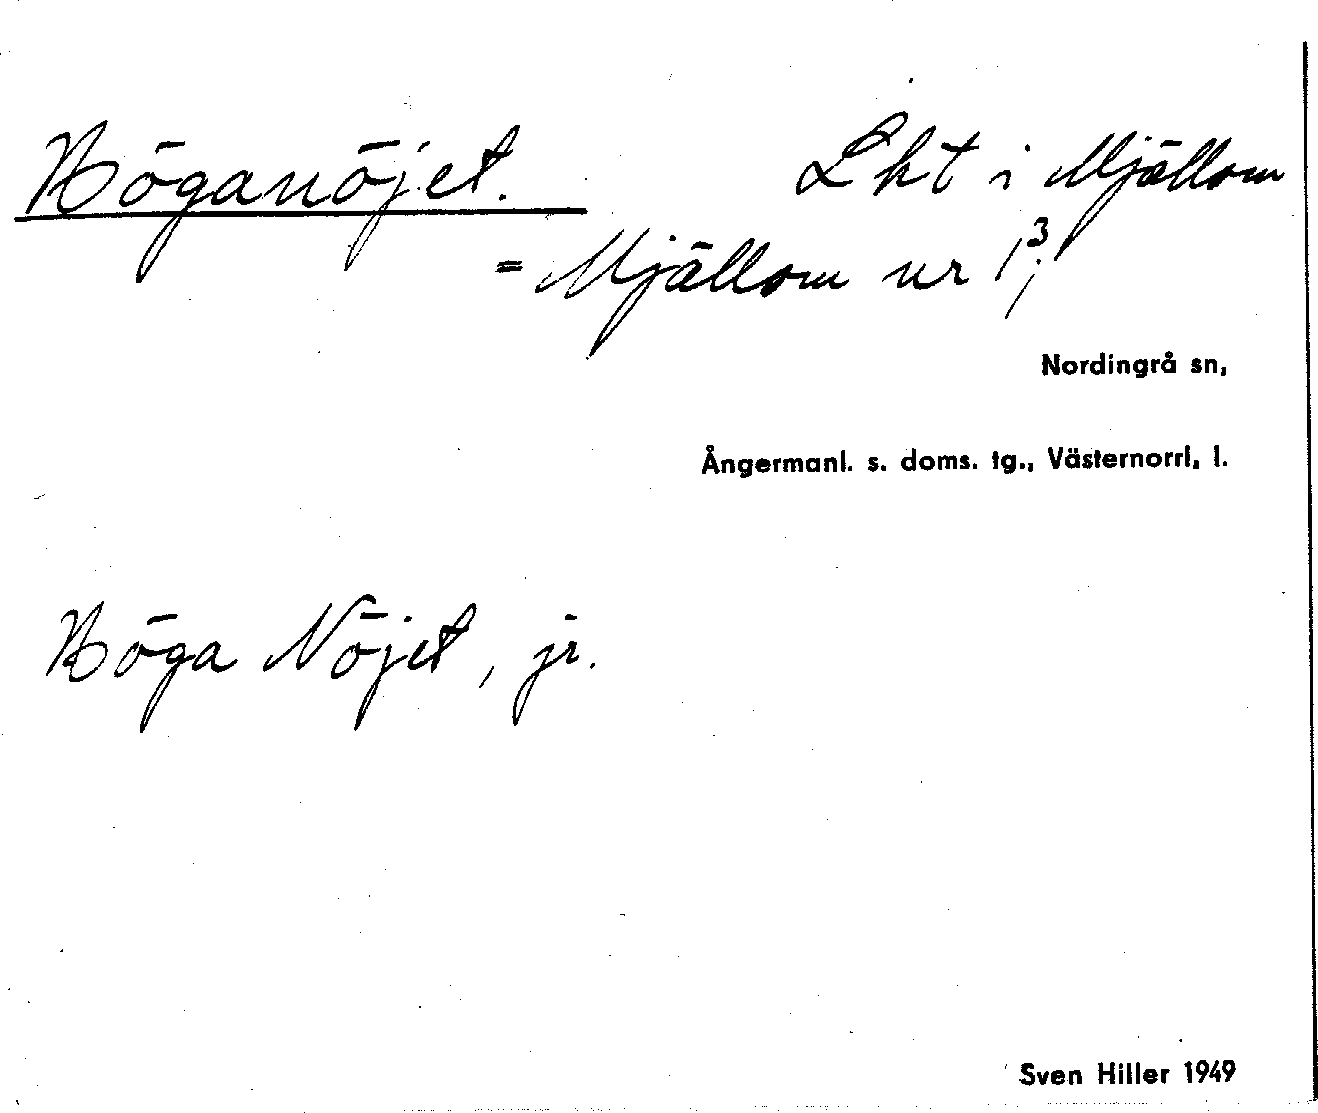 Höganöjet. Lht i Mjällom
= Mjällom nr 1³;
Nordingrå sn,
Ångermanl. s. doms. tg., Västernorrl. l.
Höga Nöjet, jr.
Sven Hiller 1949